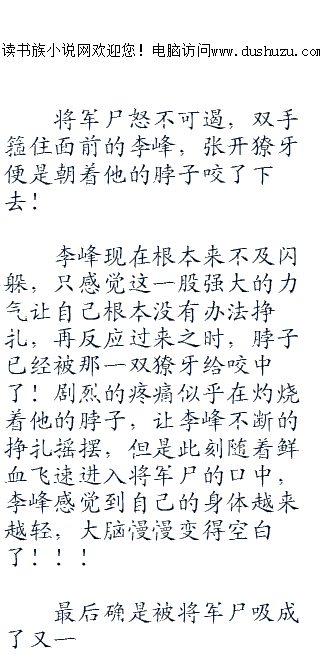 读书族小说网欢迎您！电脑访问www.dushuzu.com
将军尸怒不可遏，双手
箍住面前的李峰，张开獠牙
便是朝着他的脖子咬了下
去！
李峰现在根本来不及闪
躲，只感觉这一股强大的力
气让自己根本没有办法挣
扎，再反应过来之时，脖子
已经被那一双獠牙给咬中
了！剧烈的疼痛似乎在灼烧
着他的脖子，让李峰不断的
挣扎摇摆，但是此刻随着鲜
血飞速进入将军尸的口中，
李峰感觉到自己的身体越来
越轻，大脑慢慢变得空白
了！！！
最后确是被将军尸吸成
了又一